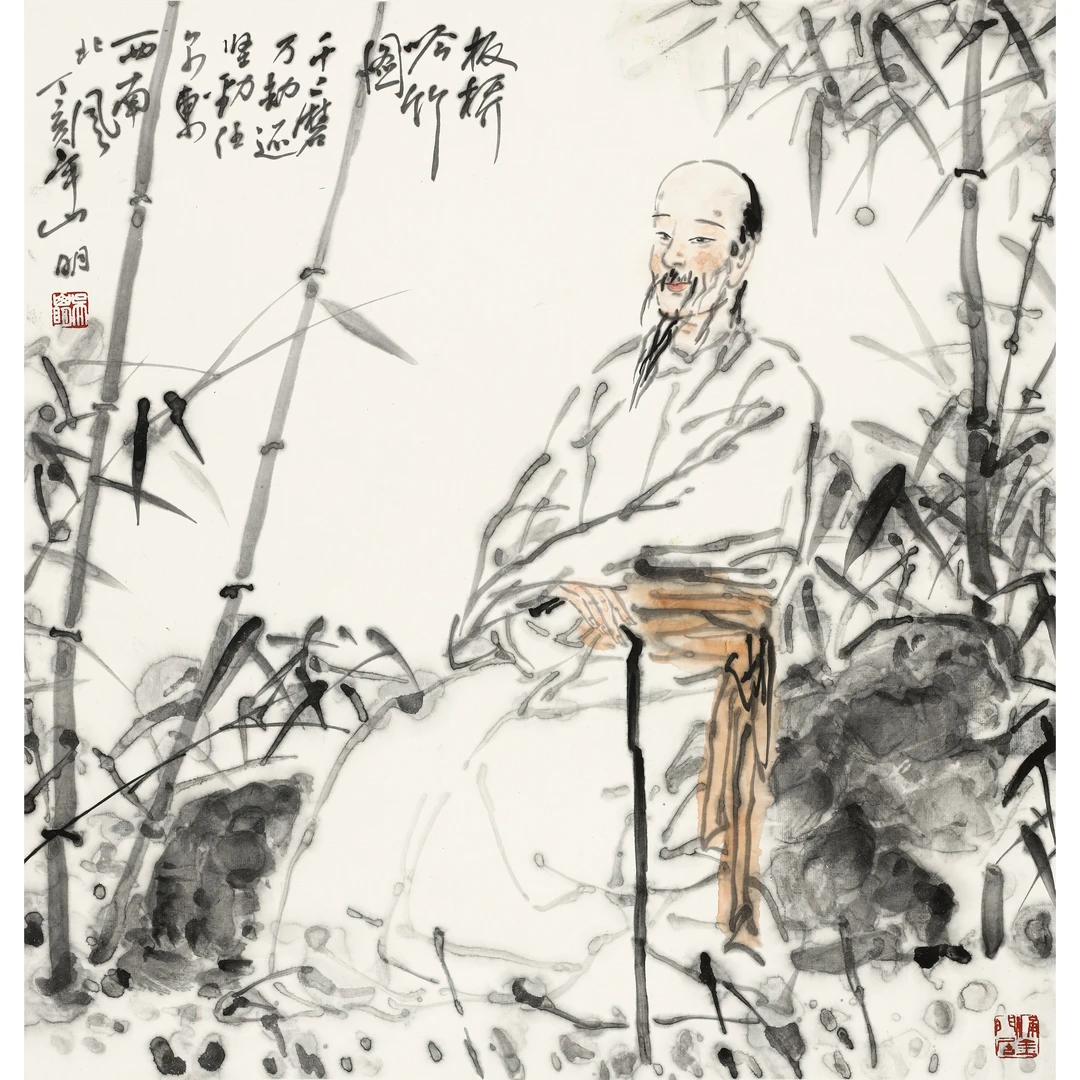 板桥
吟竹
圖
千磨
万劫还
坚劲任
尔東
西南
北風
丁亥年山明